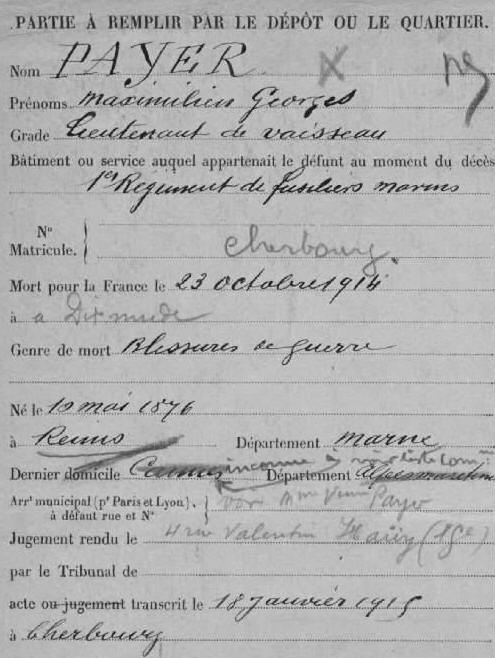 PARTIE À REMPLIR PAR LE DÉPÔT OU LE QUARTIER.
Nom PAYER
Prénoms Maximilien Georges
Grade Lieutenant de vaisseau
Bâtiment ou service auquel appartenait le défunt au moment du décès
1er Régiment de fusiliers marins
No
Matricule. Cherbourg.
Mort pour la France le 23 octobre 1914
à a Dixmude
Genre de mort Blessures de guerre
Né le 10 mai 1876
à Reims Département Marne
Dernier domicile Cannes inconnu à Département Alpes maritimes
Arrt municipal (pr Paris et Lyon), voir Mme Veuve Payer
à défaut rue et No
Jugement rendu le 4 rue Valentin Haüy (15e)
par le Tribunal de
acte ou jugement transcrit le 18 Janvier 1915
à Cherbourg